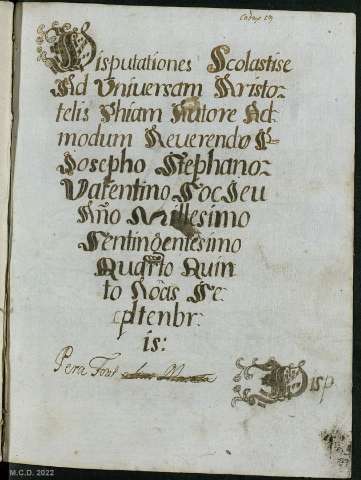 Disputationes Scolastise
Ad Universam Aristo-
telis Phiam Autore Ad
modum Reverendo P.
Josepho Stephano
Valentino Soc Jeu
Año Millesimo
Sentingentesimo
Quarto Quin
to Nõas Se
eptenbr
is:
Pera
Disp
M.C.D. 2022